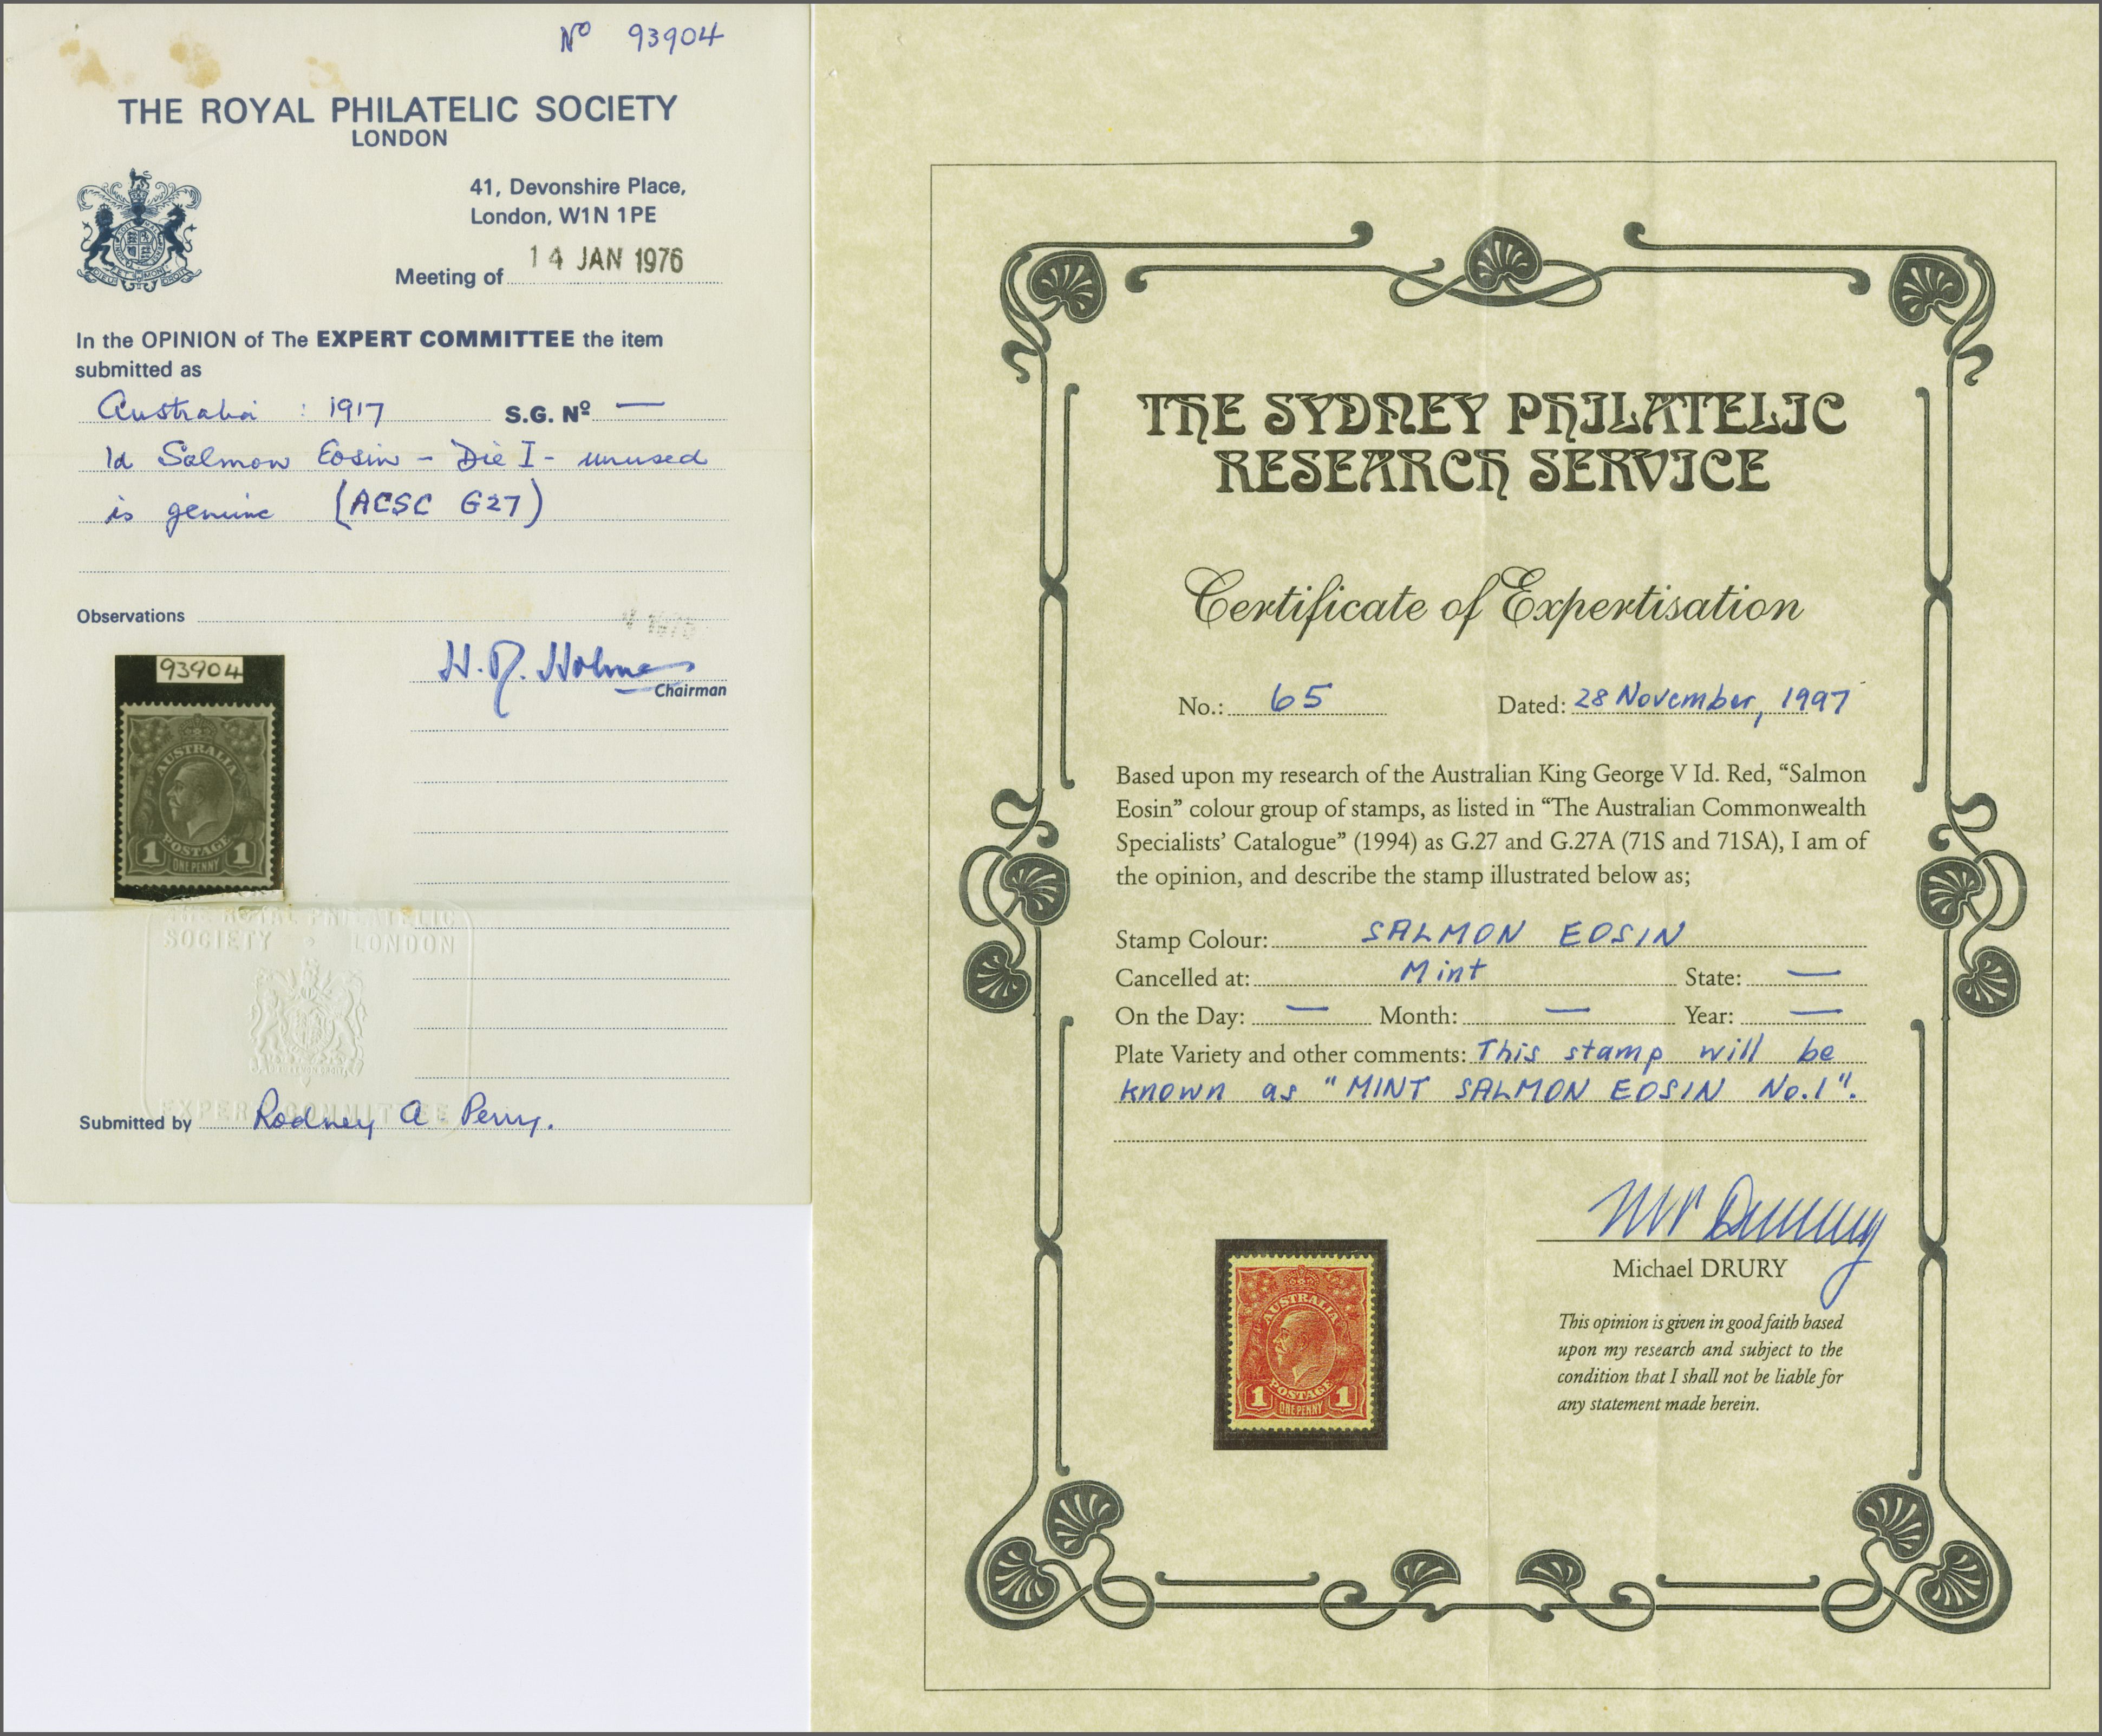 Nº 93904
THE ROYAL PHILATELIC SOCIETY
LONDON
41, Devonshire Place,
London, W1N 1PE
Meeting of 14 JAN 1976
In the OPINION of The EXPERT COMMITTEE the item
submitted as
Australia : 1917 S.G. Nº —
1d Salmon Eosin – Die I – unused
is genuine (ACSC G27)
Observations
93904
H. R. Holmes
Chairman
AUSTRALIA
POSTAGE
1 ONE PENNY 1
THE ROYAL PHILATELIC
SOCIETY LONDON
EXPERT COMMITTEE
Submitted by Rodney A Perry.
THE SYDNEY PHILATELIC
RESEARCH SERVICE
Certificate of Expertisation
No.: 65 Dated: 28 November, 1997
Based upon my research of the Australian King George V Id. Red, “Salmon
Eosin” colour group of stamps, as listed in “The Australian Commonwealth
Specialists’ Catalogue” (1994) as G.27 and G.27A (71S and 71SA), I am of
the opinion, and describe the stamp illustrated below as;
Stamp Colour: SALMON EOSIN
Cancelled at: Mint State: —
On the Day: — Month: — Year: —
Plate Variety and other comments: This stamp will be
known as "MINT SALMON EOSIN No.1".
Michael DRURY
This opinion is given in good faith based
upon my research and subject to the
condition that I shall not be liable for
any statement made herein.
AUSTRALIA
POSTAGE
1 ONE PENNY 1